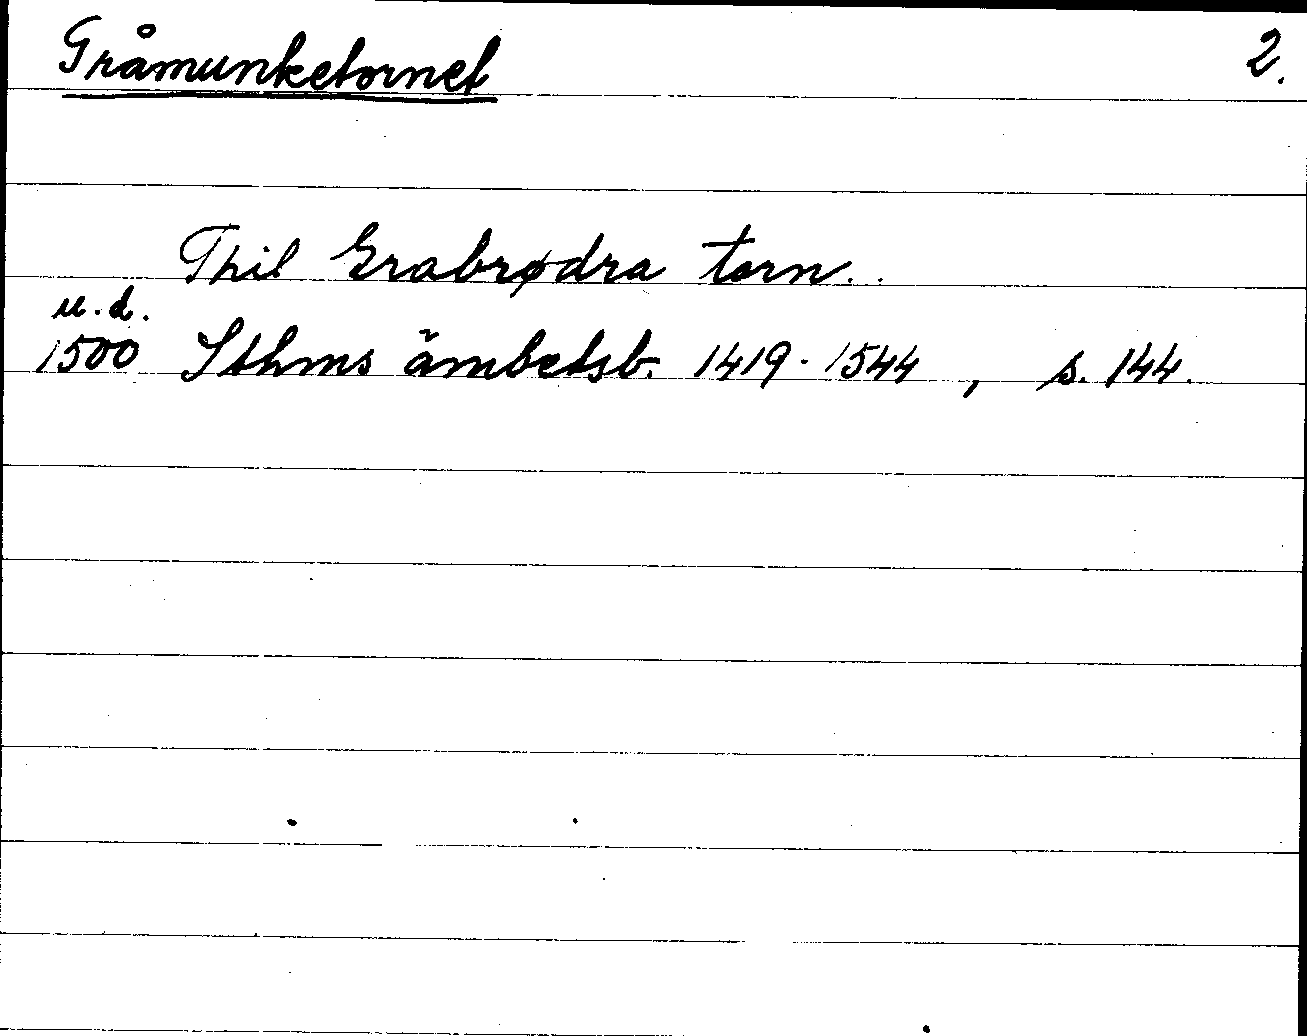 Gråmunketornet 2.
Thil Grabrødra torn..
u.d.
1500 Sthms ämbetsb. 1419-1544, s. 144.